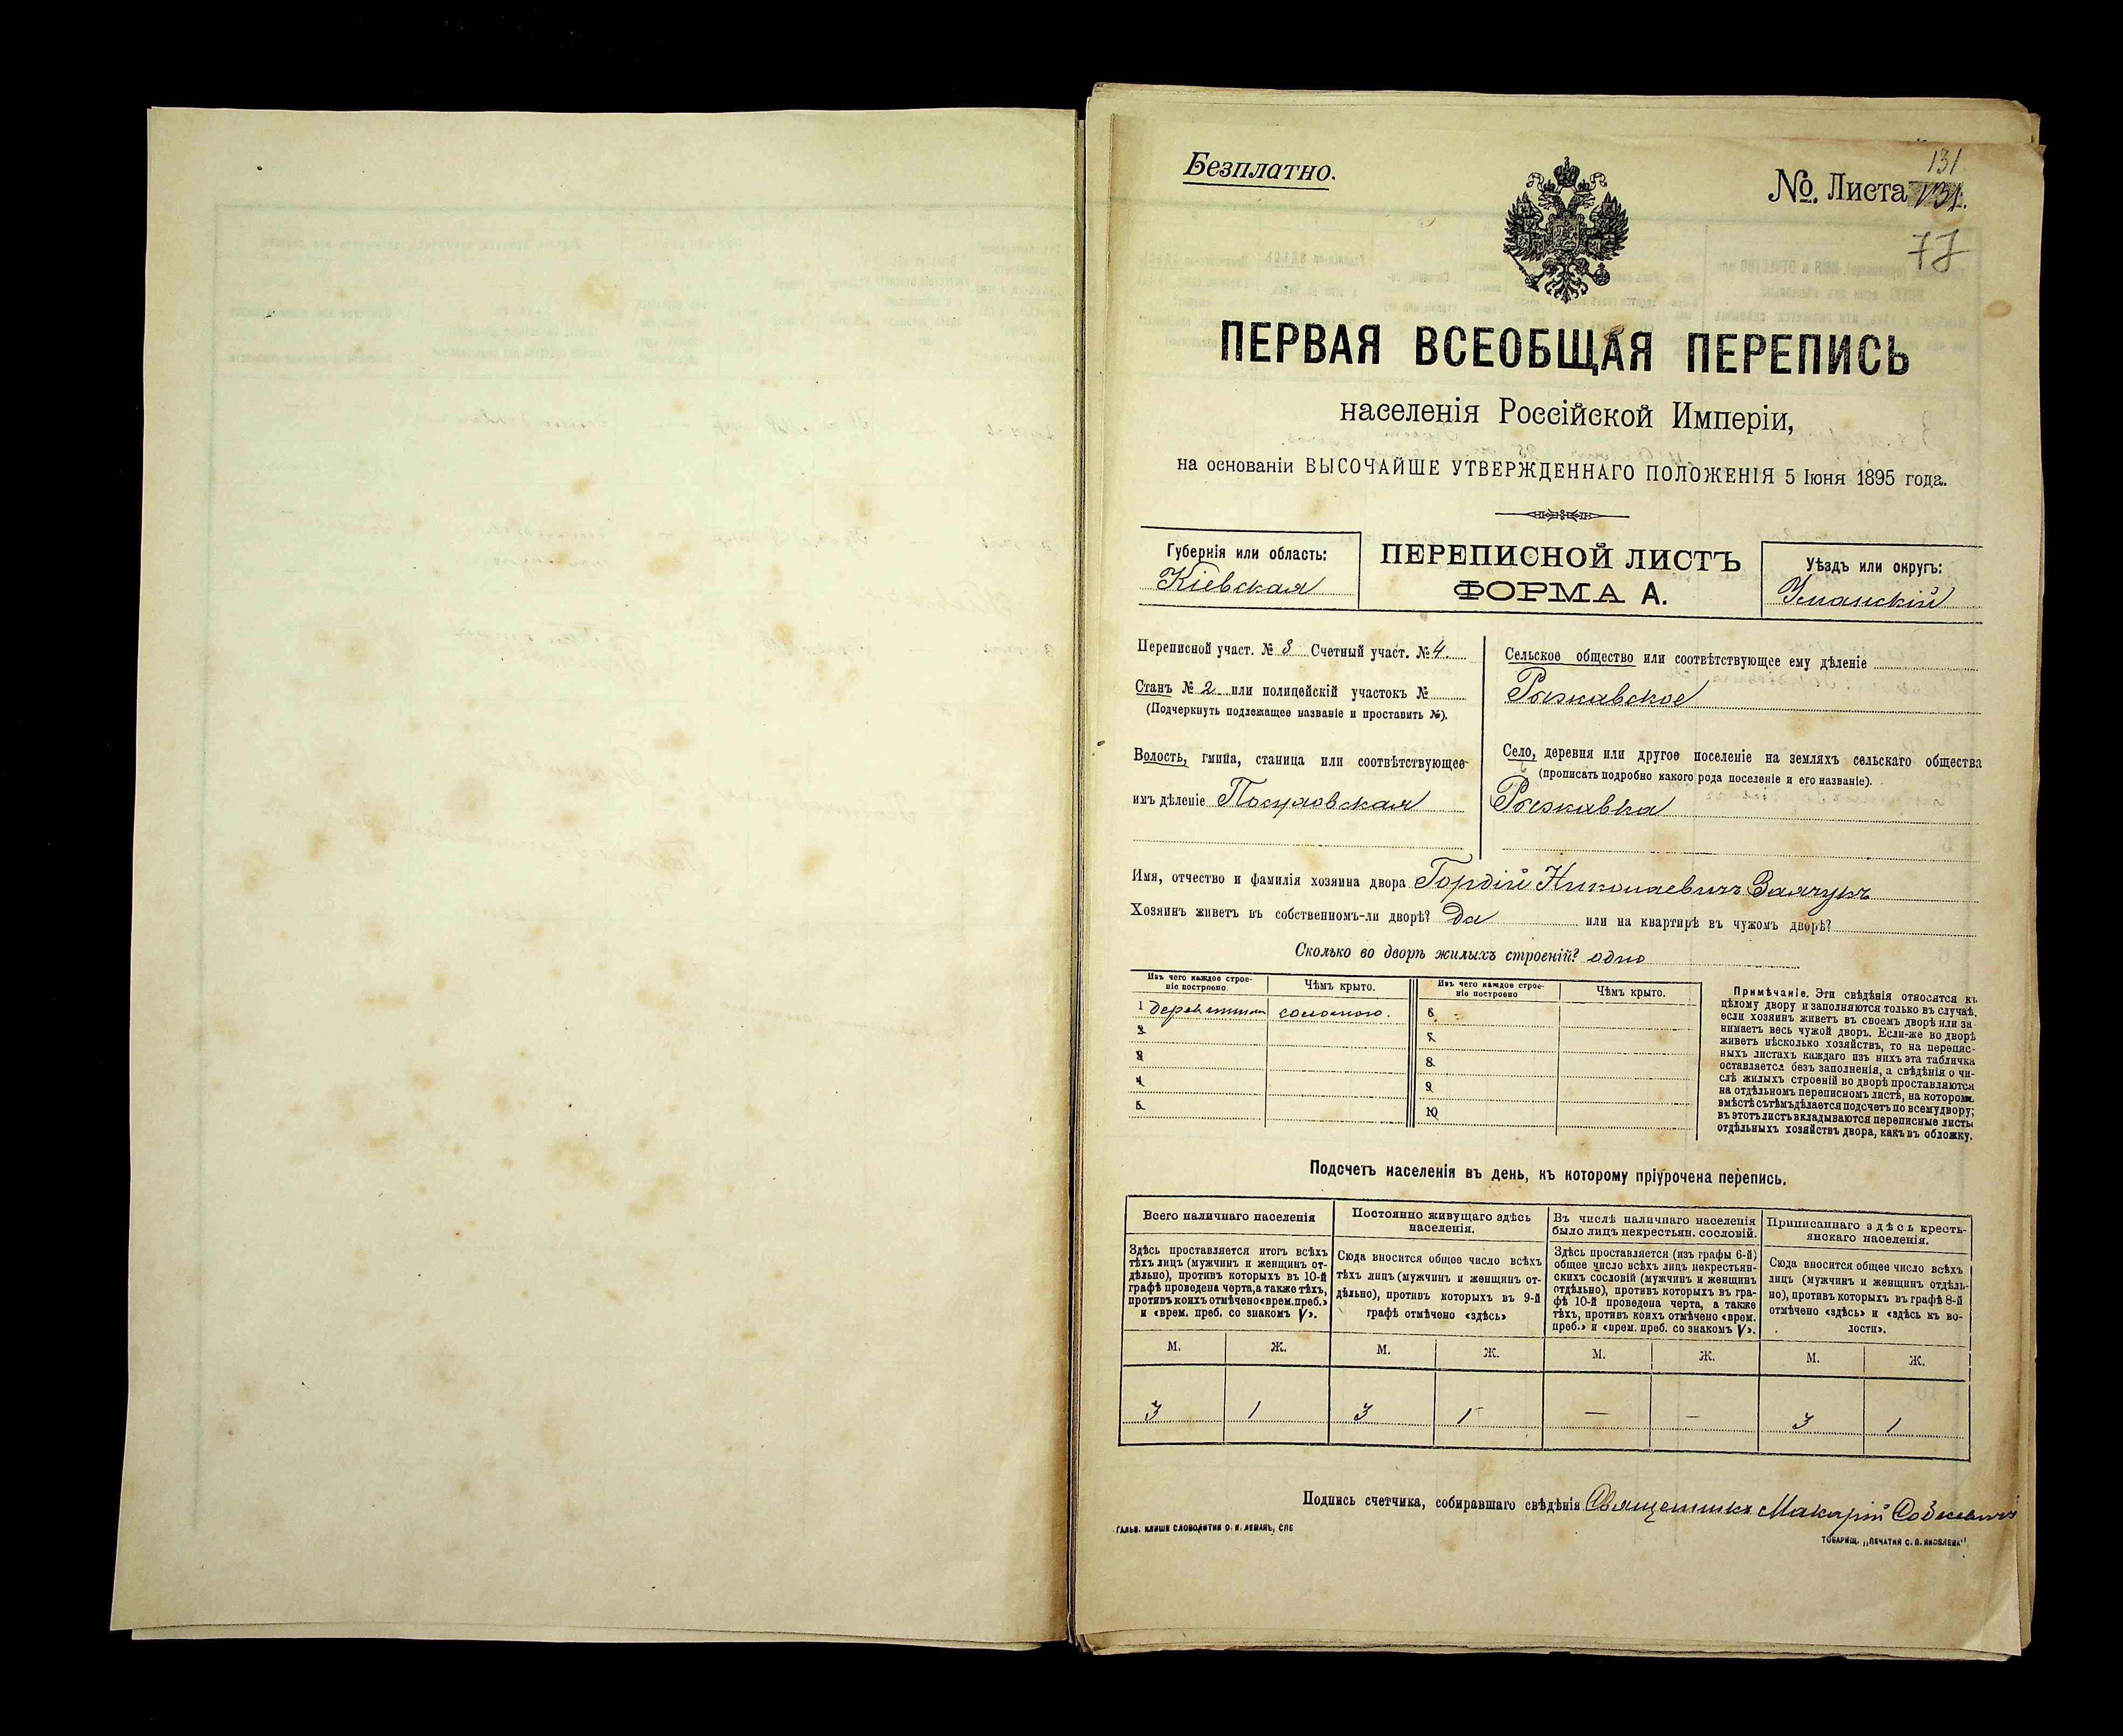 Безплатно.
131
№. Листа 131.
77
ПЕРВАЯ ВСЕОБЩАЯ ПЕРЕПИСЬ
населенія Россійской Имперіи,
на основаніи ВЫСОЧАЙШЕ УТВЕРЖДЕННАГО ПОЛОЖЕНІЯ 5 Іюня 1895 года.
Губернія или область:
Кіевская
ПЕРЕПИСНОЙ ЛИСТЪ
ФОРМА А.
Уѣздъ или округъ:
Уманскій
Переписной участ. № 3 Счетный участ. № 4.
Станъ № 2 или полицейскій участокъ №
(Подчеркнуть подлежащее названіе и проставить №).
Волость, гмина, станица или соотвѣтствующее
имъ дѣленіе
Сельское общество или соотвѣтствующее ему дѣленіе
Рыжавское
Село, деревня или другое поселеніе на земляхъ сельскаго общества
(прописать подробно какого рода поселеніе и его названіе).
Рыжавка
Имя, отчество и фамилія хозяина двора Гордій Николаевичъ Заячукъ
Хозяинъ живетъ въ собственномъ-ли дворѣ? Да или на квартирѣ въ чужомъ дворѣ?
Сколько во дворѣ жилыхъ строеній? одно
Изъ чего каждое строе-
ніе построено.
Чѣмъ крыто.
Изъ чего каждое строе-
ніе построено
Чѣмъ крыто.
1 соломою. 6
2 7
3 8
4 9
5 10
Примѣчаніе. Эти свѣдѣнія относятся къ
цѣлому двору и заполняются только въ случаѣ,
если хозяинъ живетъ въ своемъ дворѣ или за-
нимаетъ весь чужой дворъ. Если-же во дворѣ
живетъ нѣсколько хозяйствъ, то на перепис-
ныхъ листахъ каждаго изъ нихъ эта табличка
оставляется безъ заполненія, а свѣдѣнія о чи-
слѣ жилыхъ строеній во дворѣ проставляются
на отдѣльномъ переписномъ листѣ, на которомъ
вмѣстѣ съ тѣмъ дѣлается подсчетъ по всему двору;
въ этотъ листъ вкладываются переписные листы
отдѣльныхъ хозяйствъ двора, какъ въ обложку.
Подсчетъ населенія въ день, къ которому пріурочена перепись.
Всего наличнаго населенія
Здѣсь проставляется итогъ всѣхъ
тѣхъ лицъ (мужчинъ и женщинъ от-
дѣльно), противъ которыхъ въ 10-й
графѣ проведена черта, а также тѣхъ,
противъ коихъ отмѣчено «врем. преб.»
и «врем. преб. со знакомъ V».
Постоянно живущаго здѣсь
населенія.
Сюда вносится общее число всѣхъ
тѣхъ лицъ (мужчинъ и женщинъ от-
дѣльно), противъ которыхъ въ 9-й
графѣ отмѣчено «здѣсь»
Въ числѣ наличнаго населенія
было лицъ некрестьян. сословій.
Здѣсь проставляется (изъ графы 6-й)
общее число всѣхъ лицъ некрестьян-
скихъ сословій (мужчинъ и женщинъ
отдѣльно), противъ которыхъ въ гра-
фѣ 10-й проведена черта, а также
тѣхъ, противъ коихъ отмѣчено «врем.
преб.» и «врем. преб. со знакомъ V».
Приписаннаго здѣсь кресть-
янскаго населенія.
Сюда вносится общее число всѣхъ
лицъ (мужчинъ и женщинъ отдѣль-
но), противъ которыхъ въ графѣ 8-й
отмѣчено «здѣсь» и «здѣсь къ во-
лости».
М. Ж. М. Ж. М. Ж. М. Ж.
3 1 3 1 — — 3 1
Подпись счетчика, собиравшаго свѣдѣнія Священникъ Макарій
ГАЛЬВ. КЛИШЕ СЛОВОЛИТНИ О. И. ЛЕМАНЪ, СПБ
ТОВАРИЩ. „ПЕЧАТНЯ С. П. ЯКОВЛЕВА"